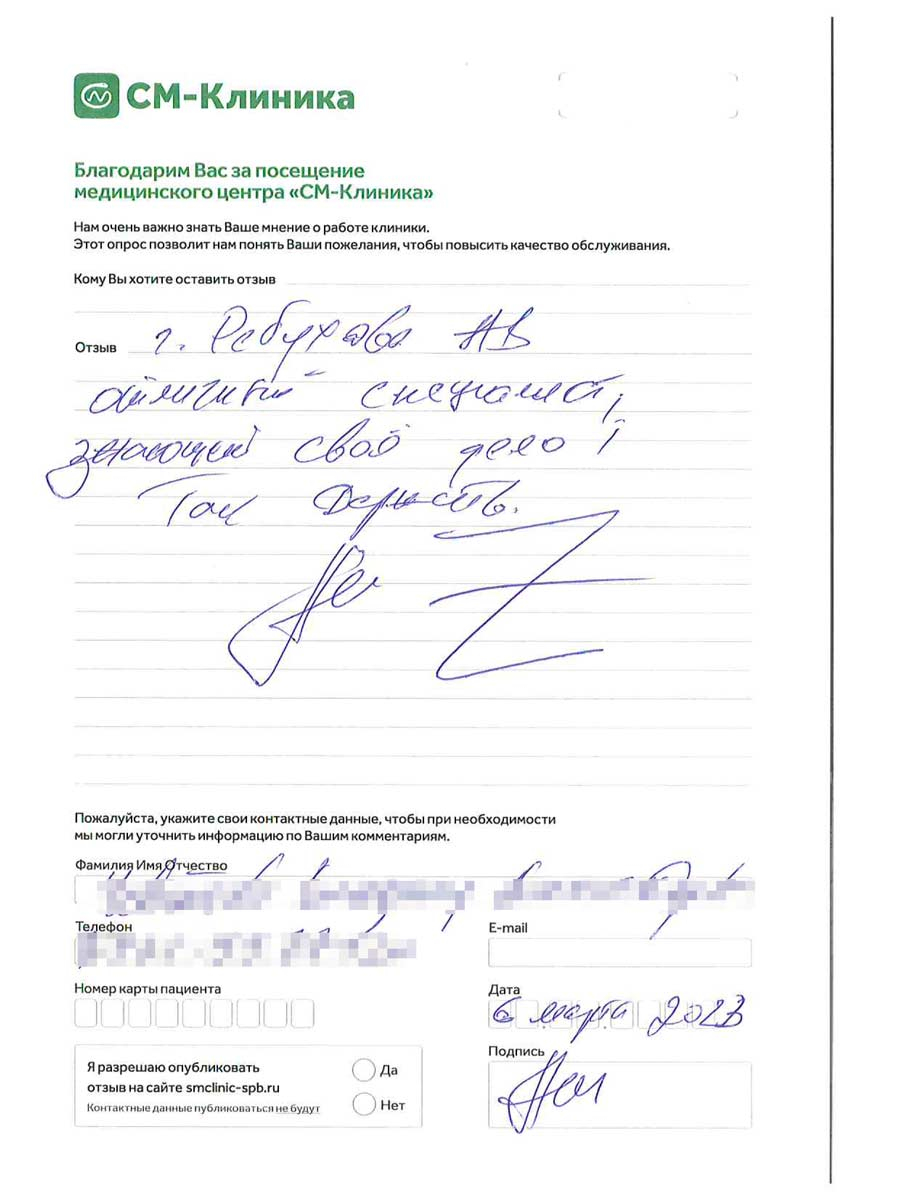 СМ-Клиника
Благодарим Вас за посещение
медицинского центра «СМ-Клиника»
Нам очень важно знать Ваше мнение о работе клиники.
Этот опрос позволит нам понять Ваши пожелания, чтобы повысить качество обслуживания.
Кому Вы хотите оставить отзыв
Отзыв г. Ребухова АВ
отличный специалист,
знающий своё дело!
Так держать.
Пожалуйста, укажите свои контактные данные, чтобы при необходимости
мы могли уточнить информацию по Вашим комментариям.
Фамилия Имя Отчество
Телефон
E-mail
Номер карты пациента
Дата
6 марта 2023
Подпись
Я разрешаю опубликовать
отзыв на сайте smclinic-spb.ru
Контактные данные публиковаться не будут
Да
Нет